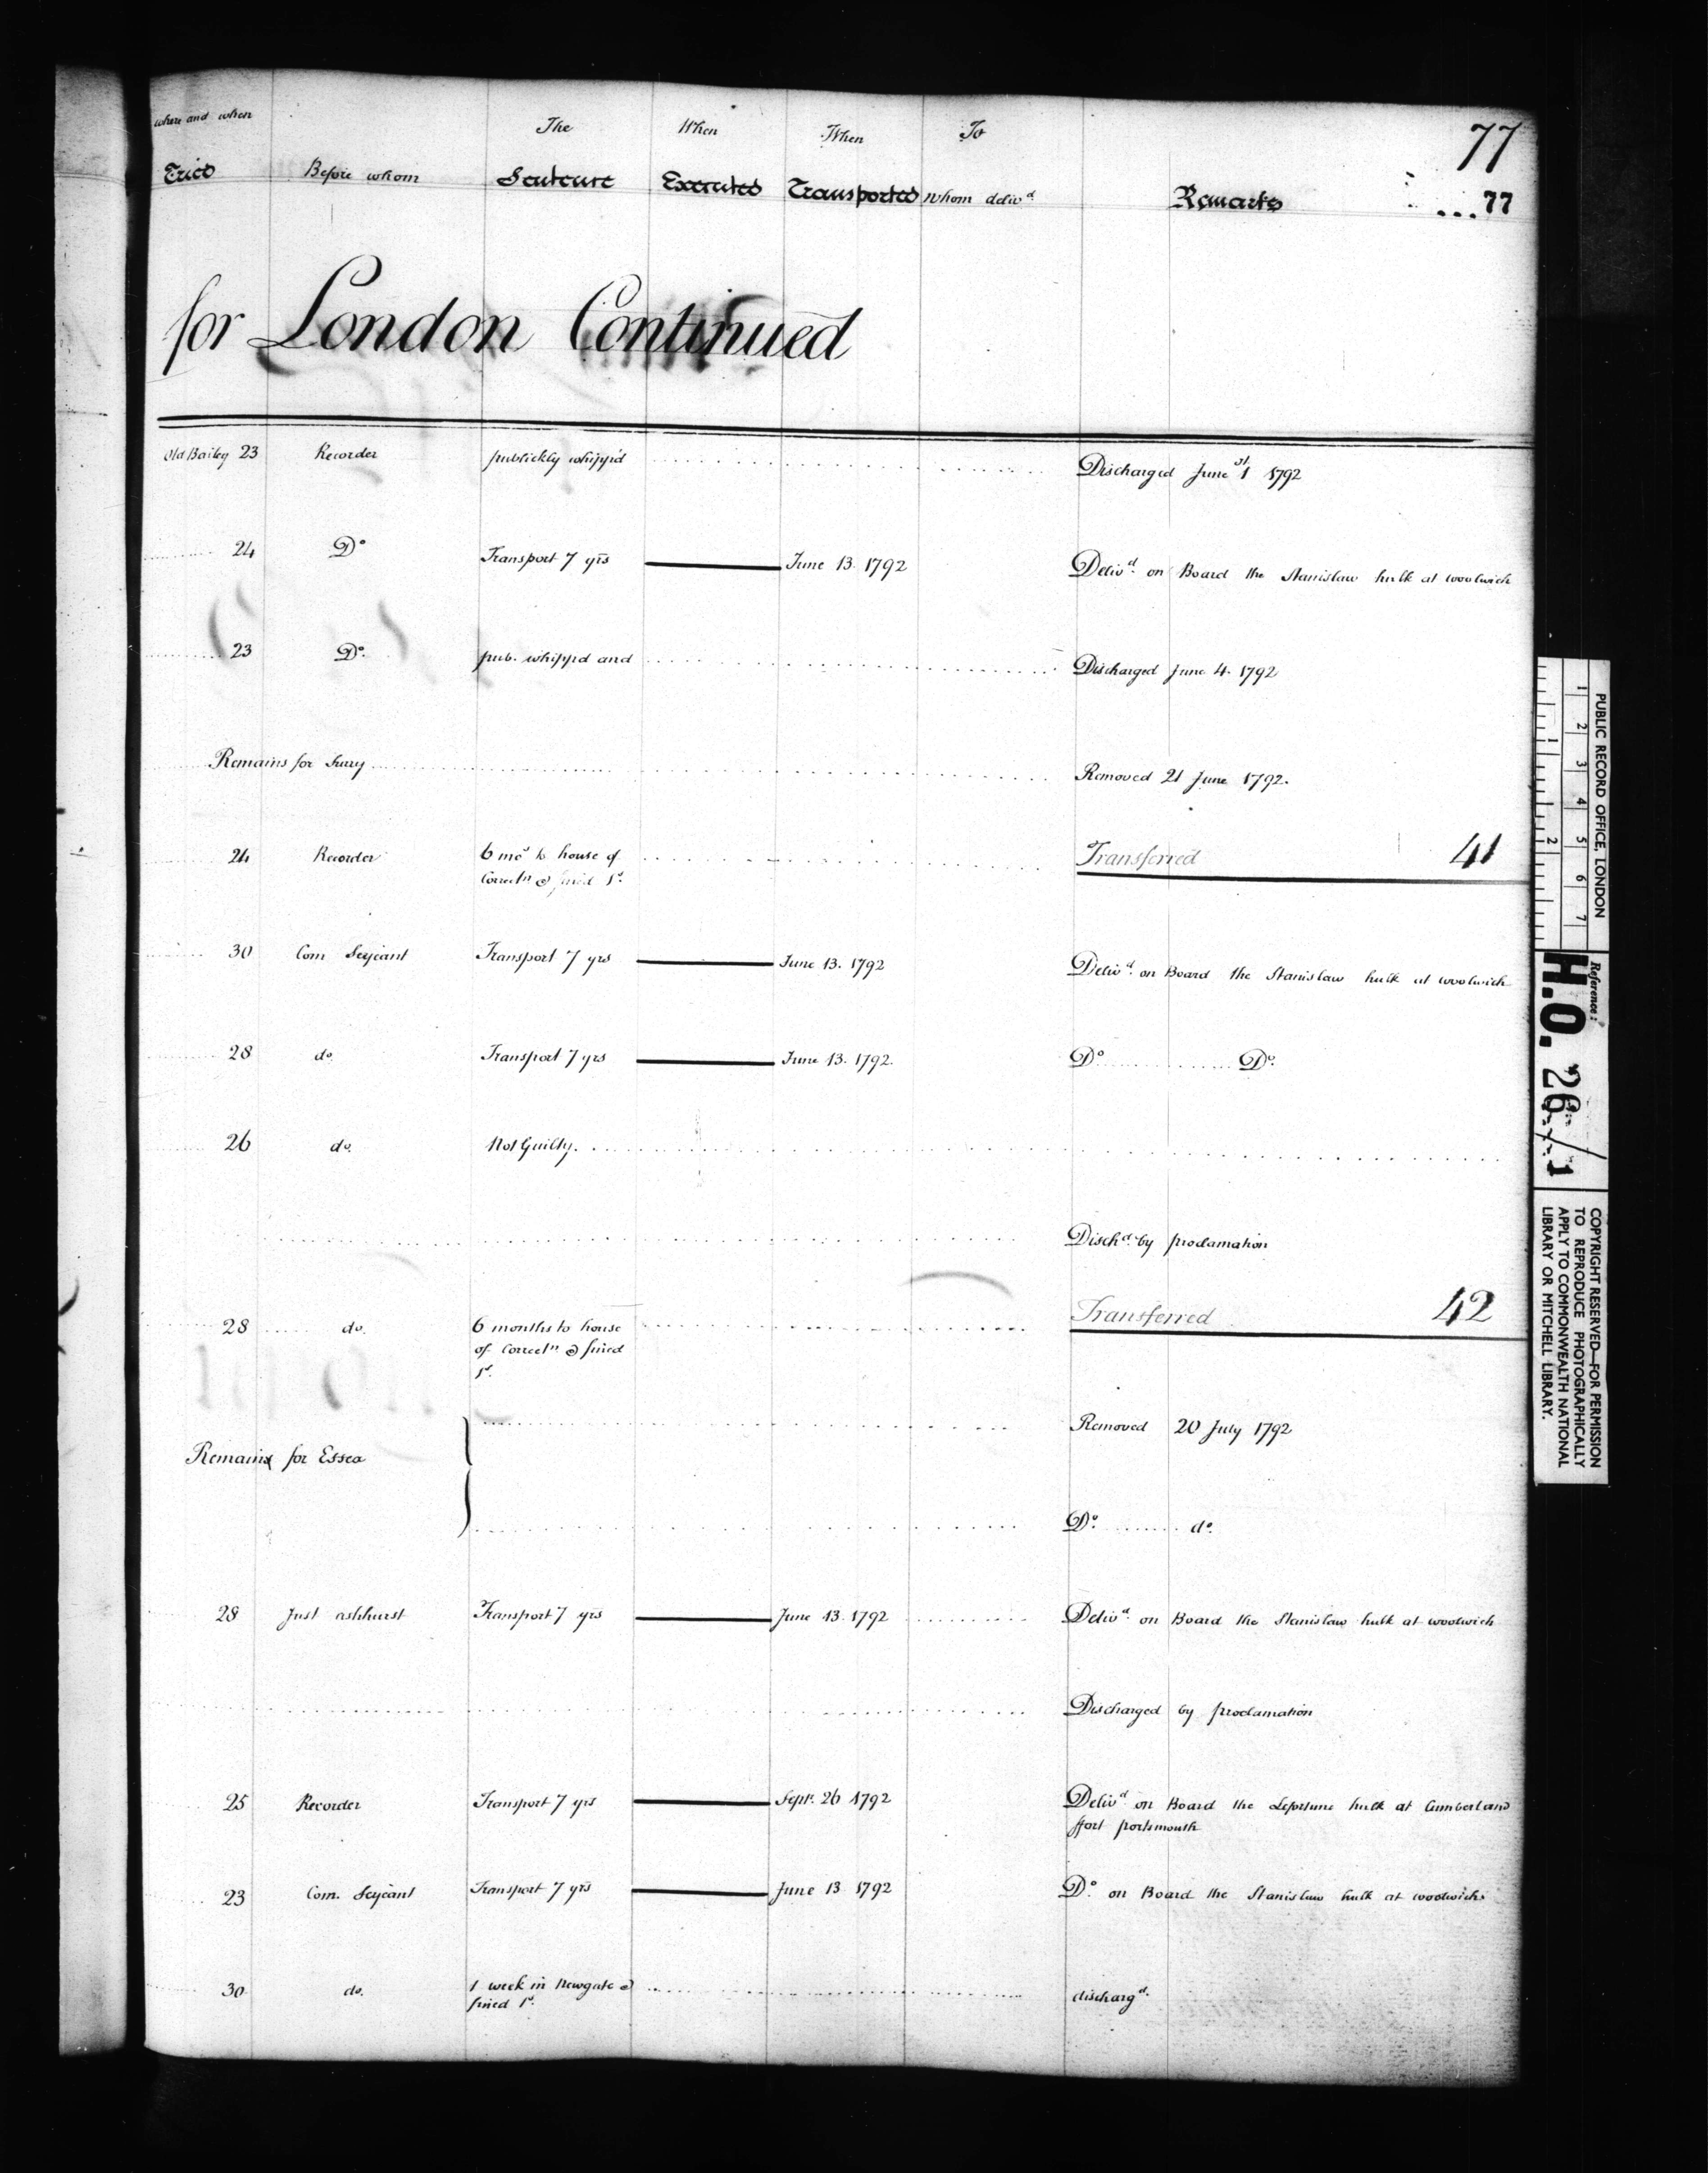 where and when The When When To 77
Tried Before whom Sentence Executed Transported Whom deliv^d Remarks ...77
for London Continued
Old Bailey 23 Recorder publickly whipp'd Discharged June 1^st 1792
24 D^o Transport 7 yrs June 13. 1792 Deliv^d. on Board the Stanislaw hulk at woolwich
23 D^o. pub. whipp'd and Discharged June 4. 1792
Remains for Surry Removed 21 June 1792.
24 Recorder 6 mo^s to house of Transferred 41
Correct^n & fined 1^s.
30 Com Serjeant Transport 7 yrs June 13. 1792 Deliv^d. on Board the Stanislaw hulk at woolwich
28 do. Transport 7 yrs June 13. 1792. D^o D^o.
26 do. Not Guilty.
Disch^d. by proclamation
28 do. 6 months to house Transferred 42
of Correct^n & fined
1^s.
Removed 20 July 1792
Remains for Essex
D^o. d^o.
28 Just ashhurst Transport 7 yrs June 13. 1792 Deliv^d. on Board the Stanislaw hulk at woolwich
Discharged by proclamation
25 Recorder Transport 7 yrs Sept. 26 1792 Deliv^d. on Board the Lefortune hulk at Cumberland
ffort portsmouth
23 Com. Serjeant Transport 7 yrs June 13 1792 D^o. on Board the Stanislaw hulk at woolwich
30 do. 1 week in Newgate & discharg^d.
fined 1^s.
PUBLIC RECORD OFFICE, LONDON
1 2 3 4 5 6 7
1 2
Reference:
H.O. 26/1
COPYRIGHT RESERVED—FOR PERMISSION
TO REPRODUCE PHOTOGRAPHICALLY
APPLY TO COMMONWEALTH NATIONAL
LIBRARY OR MITCHELL LIBRARY.